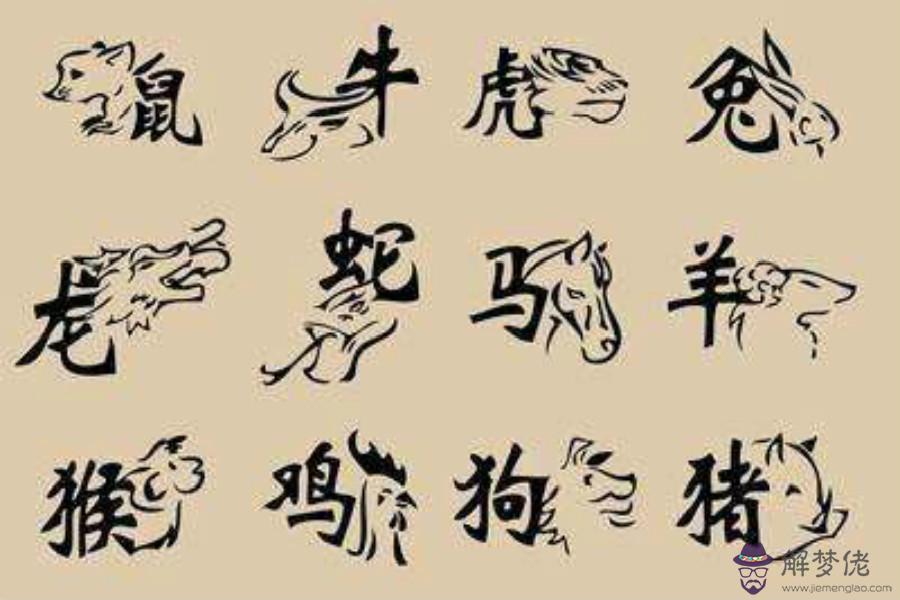 鼠 牛 虎 兔
龙 蛇 马 羊
猴 鸡 狗 猪
解梦佬
www.jiemenglao.com